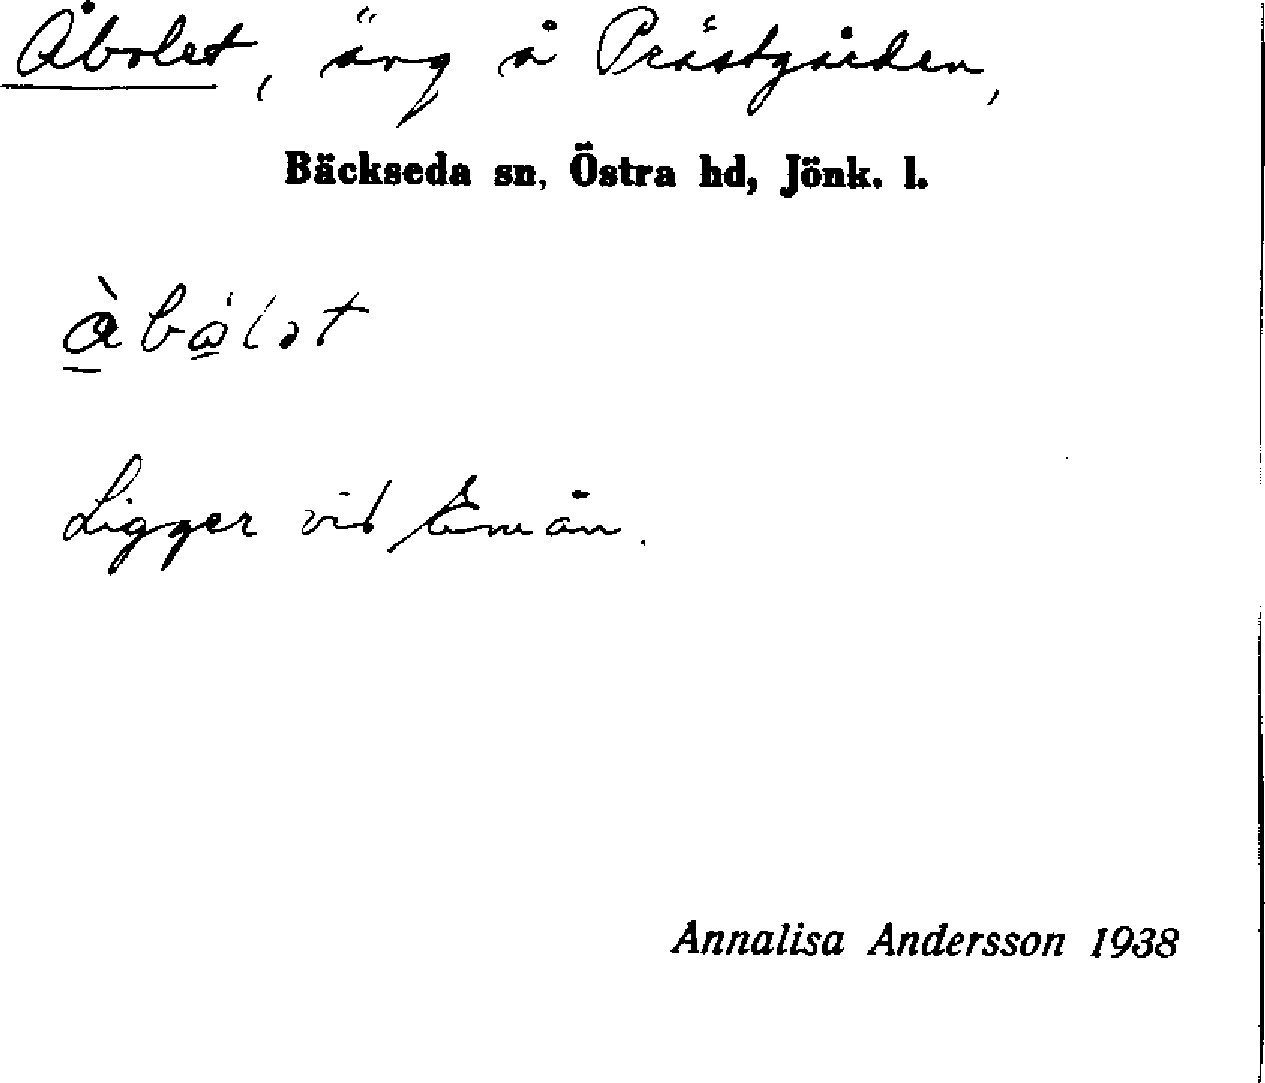 Åbolet, äng å Prästgården,
Bäckseda sn, Östra hd, Jönk. l.
å̀bå̀lət
Ligger vid Emån.
Annalisa Andersson 1938